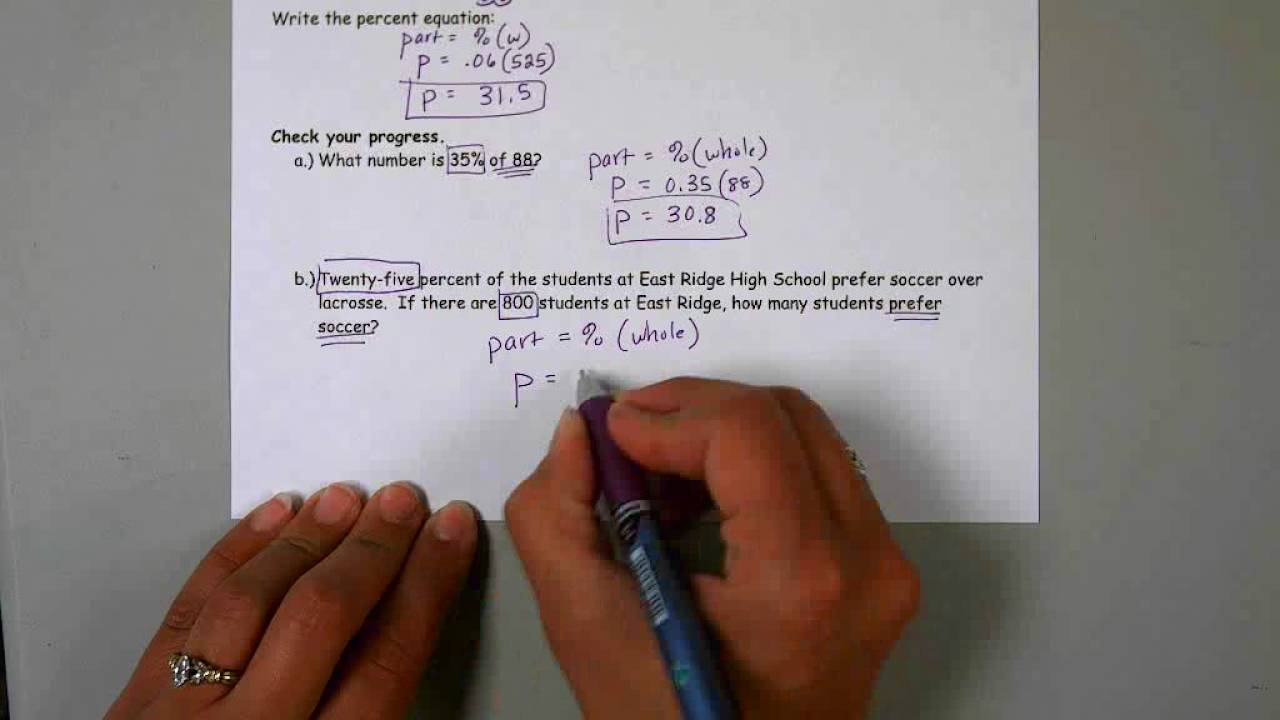 Write the percent equation:
part = % (w)
P = .06(525)
P = 31.5
Check your progress.
a.) What number is 35% of 88?
part = % (whole)
P = 0.35(88)
P = 30.8
b.) Twenty-five percent of the students at East Ridge High School prefer soccer over
lacrosse. If there are 800 students at East Ridge, how many students prefer
soccer?
part = % (whole)
P =